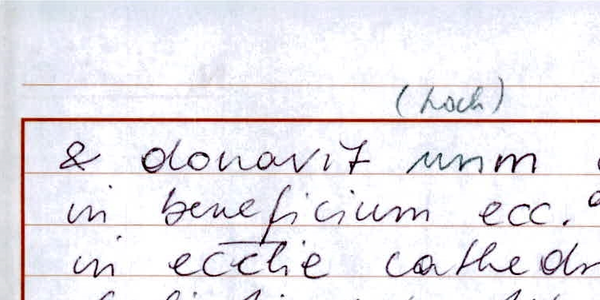 (hoch)
& donavit unm
in beneficium ecc.
in ecclie cathedr